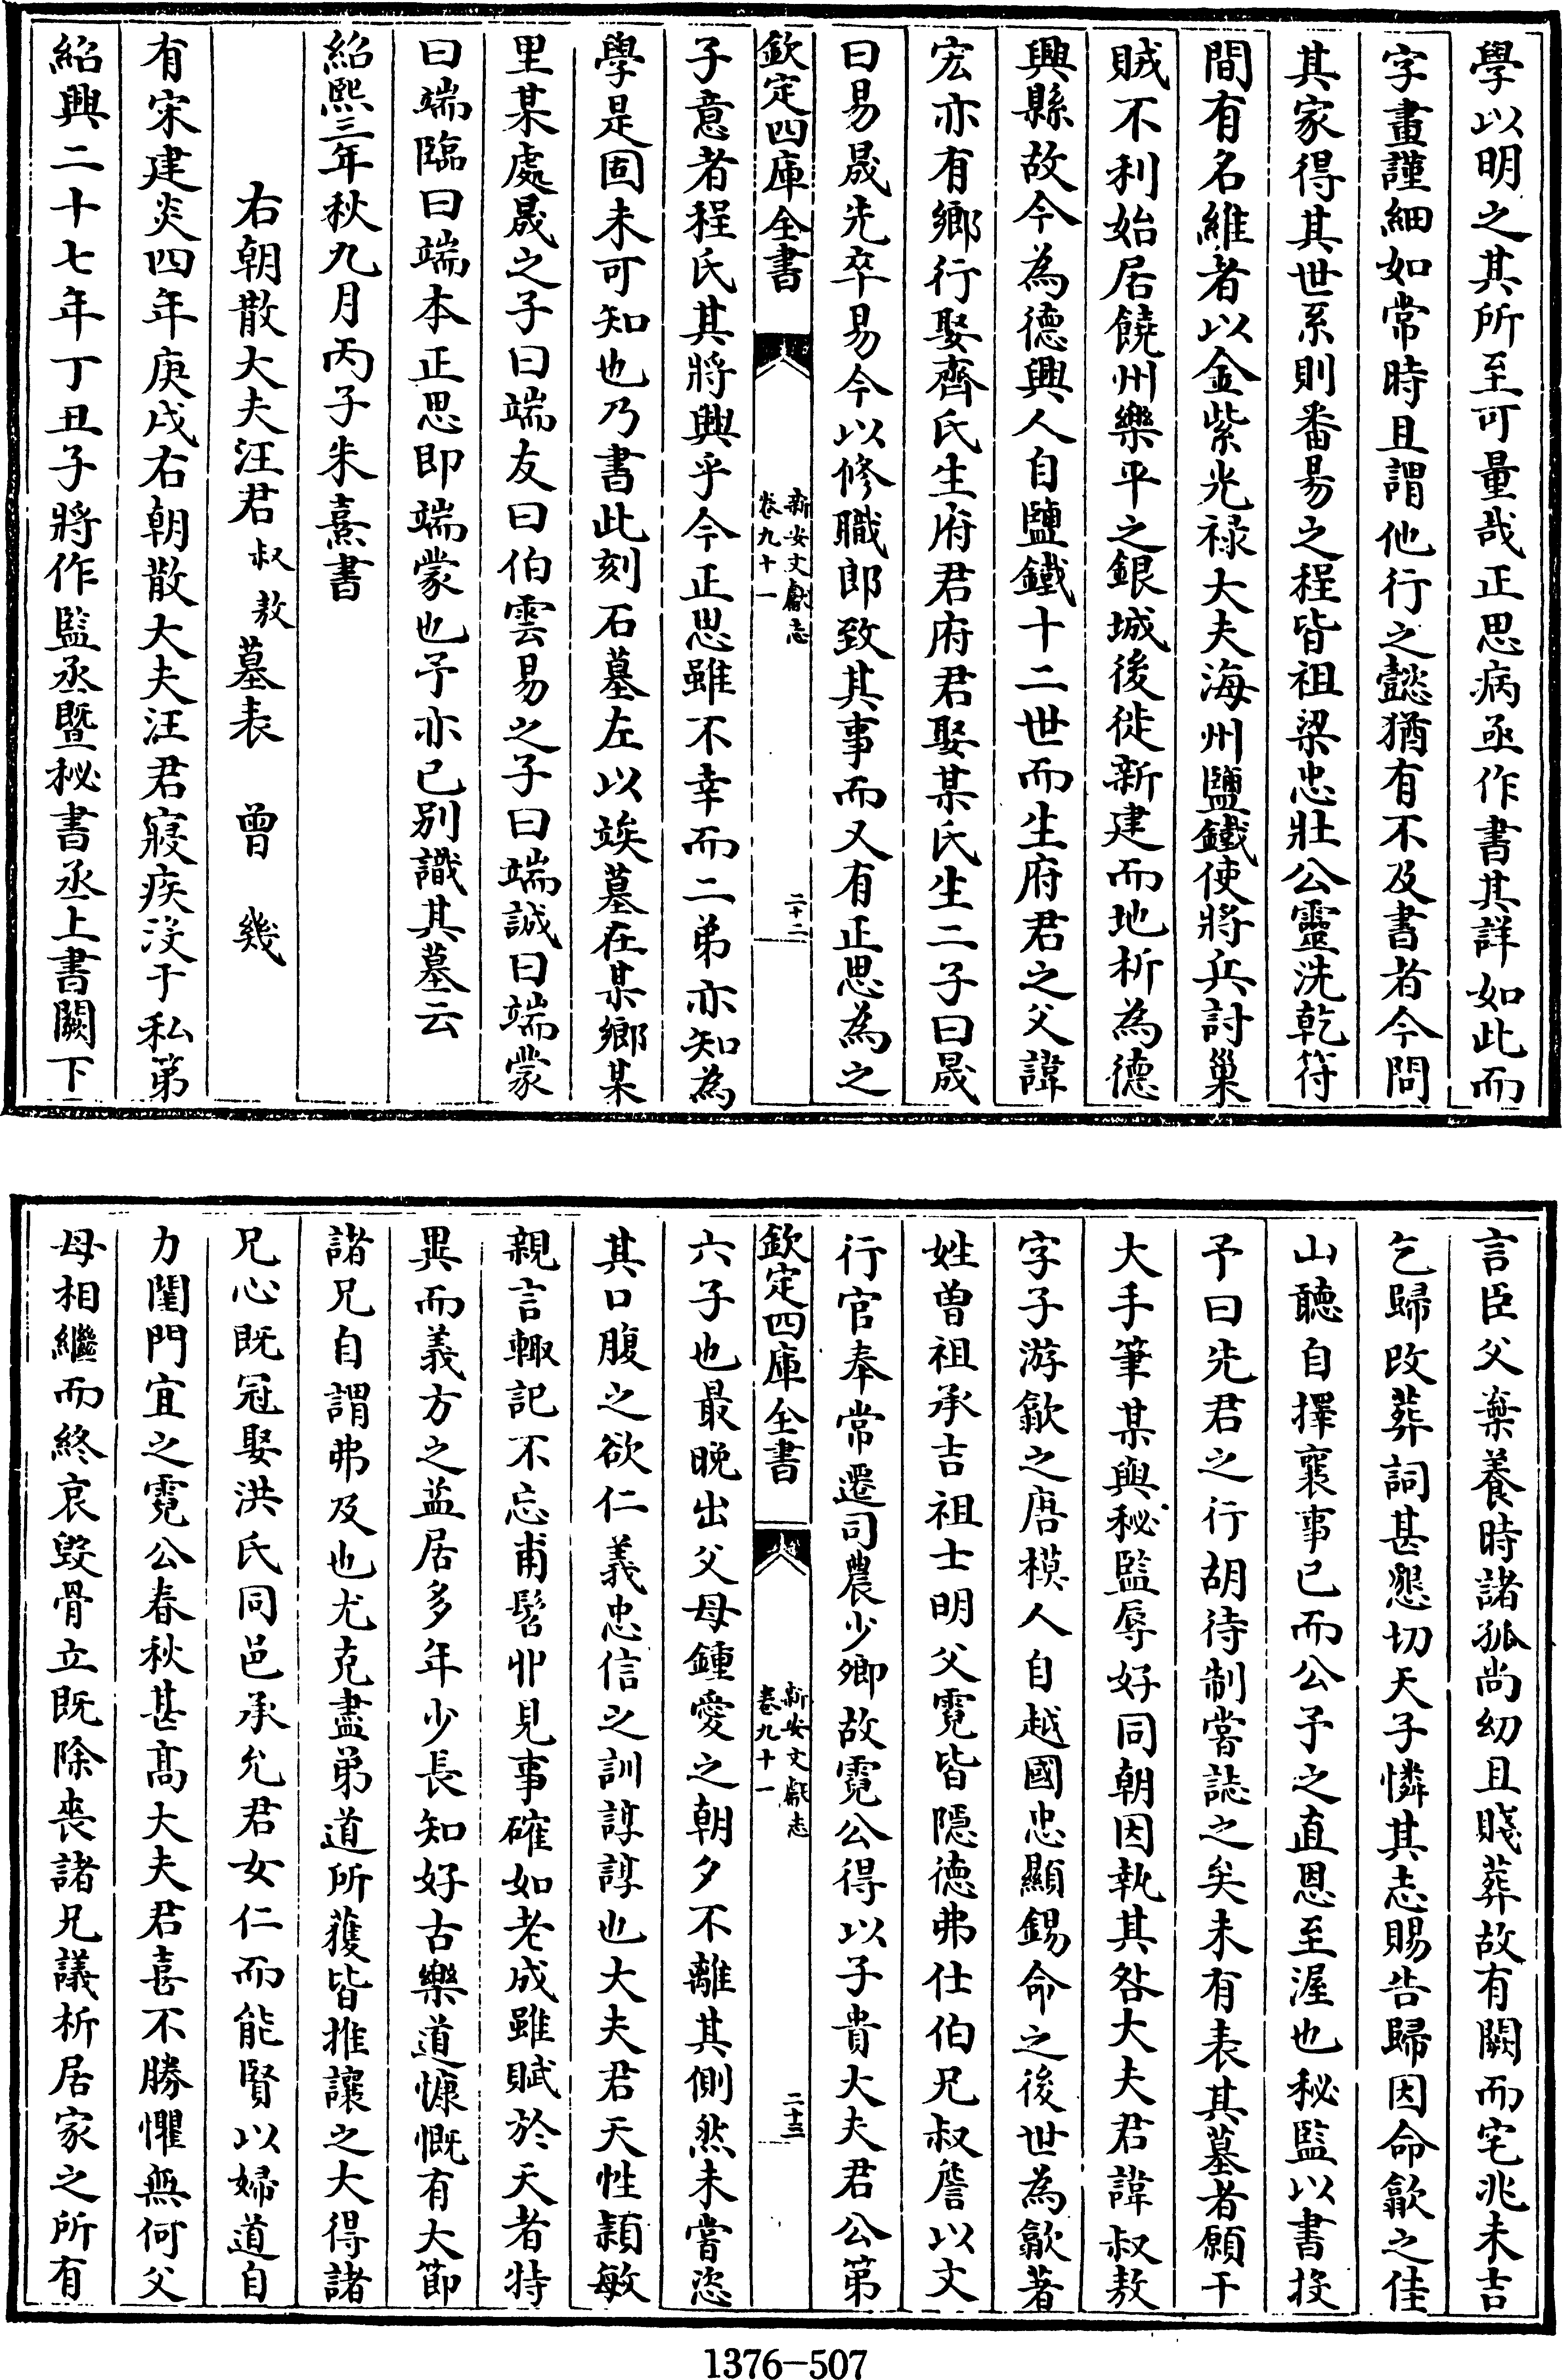 學以明之其所至可量哉正思病亟作書其詳如此而
字畫謹細如常時且謂他行之懿猶有不及書者今問
其家得其世系則番昜之程皆祖梁忠壯公靈洗乾符
間有名維者以金紫光禄大夫海州鹽鐵使將兵討巢
賊不利始居饒州樂平之銀城後徙新建而地析為德
興縣故今為德興人自鹽鐵十二世而生府君之父諱
宏亦有鄉行娶齊氏生府君府君娶某氏生二子曰晟
曰易晟先卒易今以修職郎致其事而又有正思為之
欽定四庫全書
新安文獻志
卷九十一
二十二
子意者程氏其將興乎今正思雖不幸而二弟亦知為
學是固未可知也乃書此刻石墓左以竢墓在某鄉某
里某處晟之子曰端友曰伯雲易之子曰端誠曰端蒙
曰端臨曰端本正思即端蒙也予亦已别識其墓云
紹熙三年秋九月丙子朱熹書
右朝散大夫汪君叔敖墓表 曾幾
有宋建炎四年庚戌右朝散大夫汪君寢疾沒于私第
紹興二十七年丁丑子將作監丞暨秘書丞上書闕下
言臣父棄養時諸孤尚幼且賤葬故有闕而宅兆未吉
乞歸改葬詞甚懇切天子憐其志賜告歸因命歙之佳
山聽自擇襄事已而公予之直恩至渥也秘監以書投
予曰先君之行胡待制嘗誌之矣未有表其墓者願干
大手筆某與秘監辱好同朝因執其咎大夫君諱叔敖
字子游歙之唐模人自越國忠顯錫命之後世為歙著
姓曾祖承吉祖士明父霓皆隱德弗仕伯兄叔詹以文
行官奉常遷司農少卿故霓公得以子貴大夫君公第
欽定四庫全書
新安文獻志
卷九十一
二十三
六子也最晚出父母鍾愛之朝夕不離其側然未嘗恣
其口腹之欲仁義忠信之訓諄諄也大夫君天性穎敏
親言輙記不忘甫髫丱見事確如老成雖賦於天者特
異而義方之益居多年少長知好古樂道慷慨有大節
諸兄自謂弗及也尤克盡弟道所獲皆推讓之大得諸
兄心既冠娶洪氏同邑承允君女仁而能賢以婦道自
力閨門宜之霓公春秋甚髙大夫君喜不勝懼無何父
母相繼而終哀毀骨立既除喪諸兄議析居家之所有
1376-507